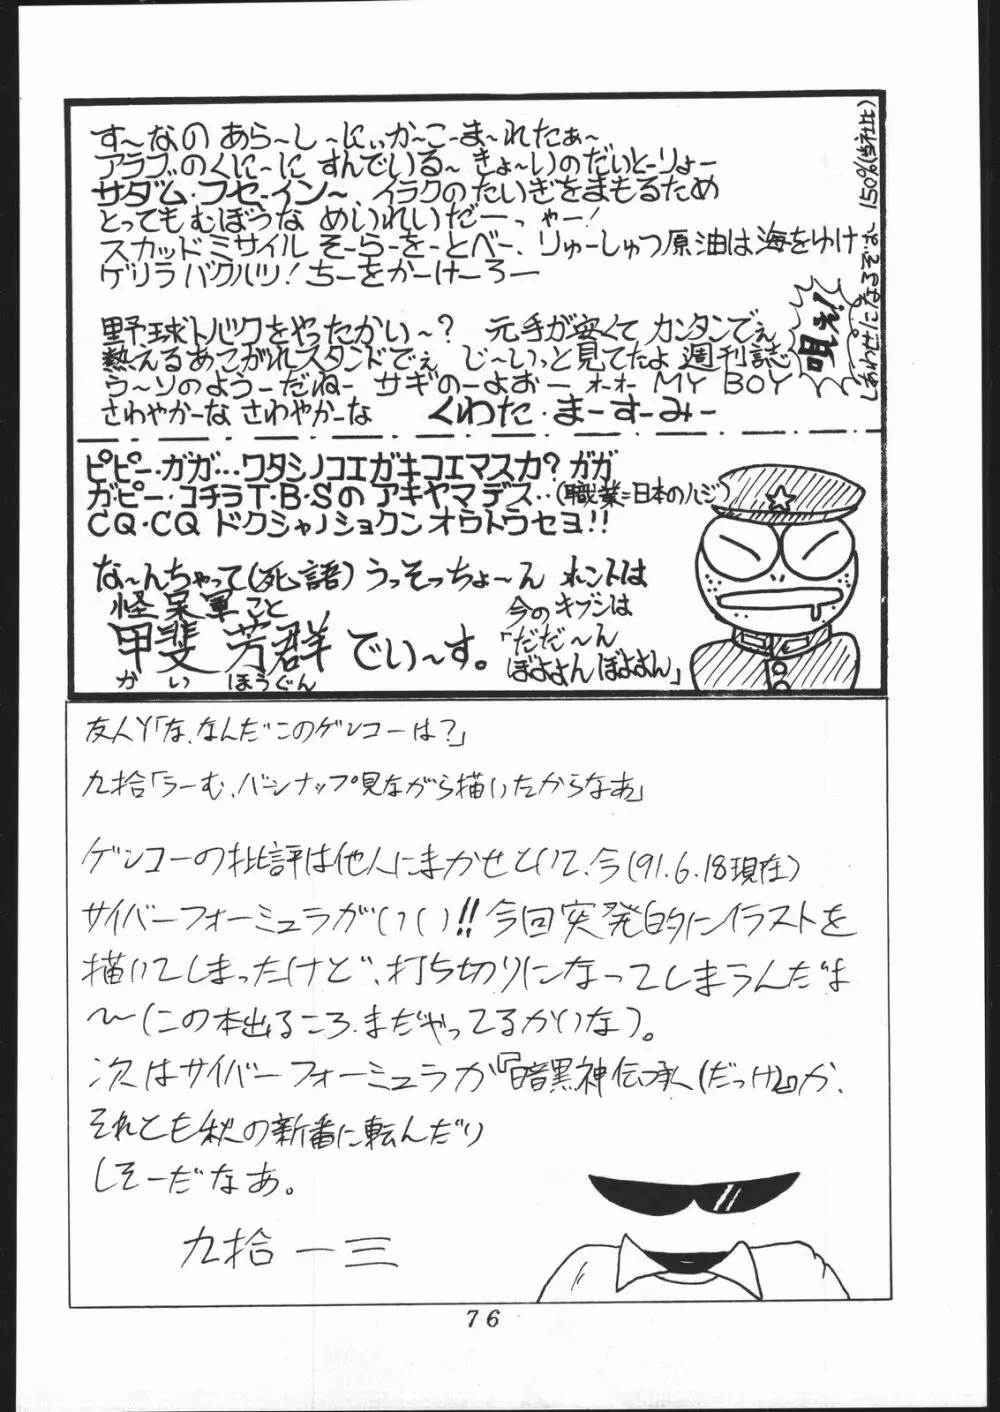 す〜なの あら〜し〜にぃか〜こーま〜れたぁ〜
アラブのくに〜に すんでいる〜 きょ〜いのだいとーりょー
サダム・フセーイン〜、イラクのたいぎをまもるため
とってもむぼうな めいれいだーっゃー!
スカッドミサイル そーらーをーとべー、りゅーしゅつ原油は海をゆけ
ゲリラバクハツ!ちーをかーけーろー
野球トバクをやったかい〜? 元手が安くて カンタンでぇ
熱えるあこがれスタンドでぇ じ〜いっと見てたよ 週刊誌
う〜ソのようーだねー サギのーよおー オーオー MY BOY
さわやかーな さわやかーな くわた・まーすーみー
唄え!
しあわせになるぞよ 150%(当社比)
ピピー・ガガ・・・ワタシノコエガキコエマスカ?ガガ
ガピー・コチラT・B・Sの アキヤマデス・・(職業=日本のハジ)
CQ・CQ ドクシャノショクンオウトウセヨ!!
な〜んちゃって(死語)うっそっちょ〜ん ホントは
怪呆軍こと
甲斐 芳群でい〜す。
か い ほうぐん
今のキブンは
「だだ〜ん
ぼよよんぼよよん」
友人Y「な、なんだこのゲンコーは?」
九拾「うーむ、バーンナップ見ながら描いたからなあ」
ゲンコーの批評は他人にまかせといて、今(91.6.18現在)
サイバーフォーミュラがいい!!今回突発的にイラストを
描いてしまったけど、打ち切りになってしまうんだよ
〜(この本出るころ、まだやってるかいな)。
次はサイバーフォーミュラか『暗黒神伝承(だっけ)』か、
それとも秋の新番に転んだり
しそーだなあ。
九拾 一三
76